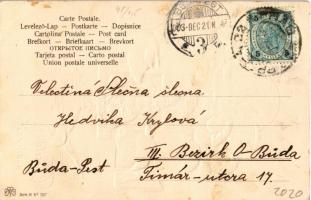 Carte Postale.
Levelező-Lap — Postkarte — Dopisnice
Cartolina Postale — Post card
Brefkort — Briefkaart — Brevkort
ОТКРЫТОЕ ПИСЬМО
Tarjeta postal — Carto postal
Union postale universelle
903 DEC 21 N
Velectěná Slečna slečna
Hedvika Krylová
III. Bezirk O-Buda
Buda-Pest
Timár-utcza 17
2020